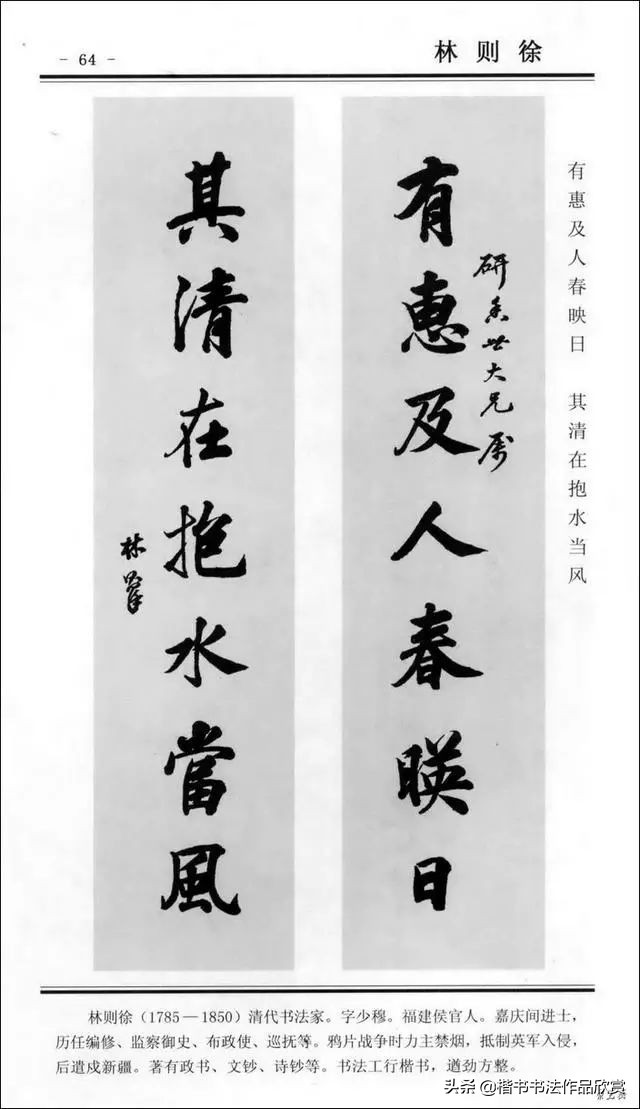 - 64 -
林则徐
有惠及人春映日 其清在抱水当风
研香世大兄属
有惠及人春暎日
其清在抱水當風
林则徐(1785—1850)清代书法家。字少穆。福建侯官人。嘉庆间进士,
历任编修、监察御史、布政使、巡抚等。鸦片战争时力主禁烟,抵制英军入侵,
后遣戍新疆。著有政书、文钞、诗钞等。书法工行楷书,遒劲方整。
头条@楷书书法作品欣赏